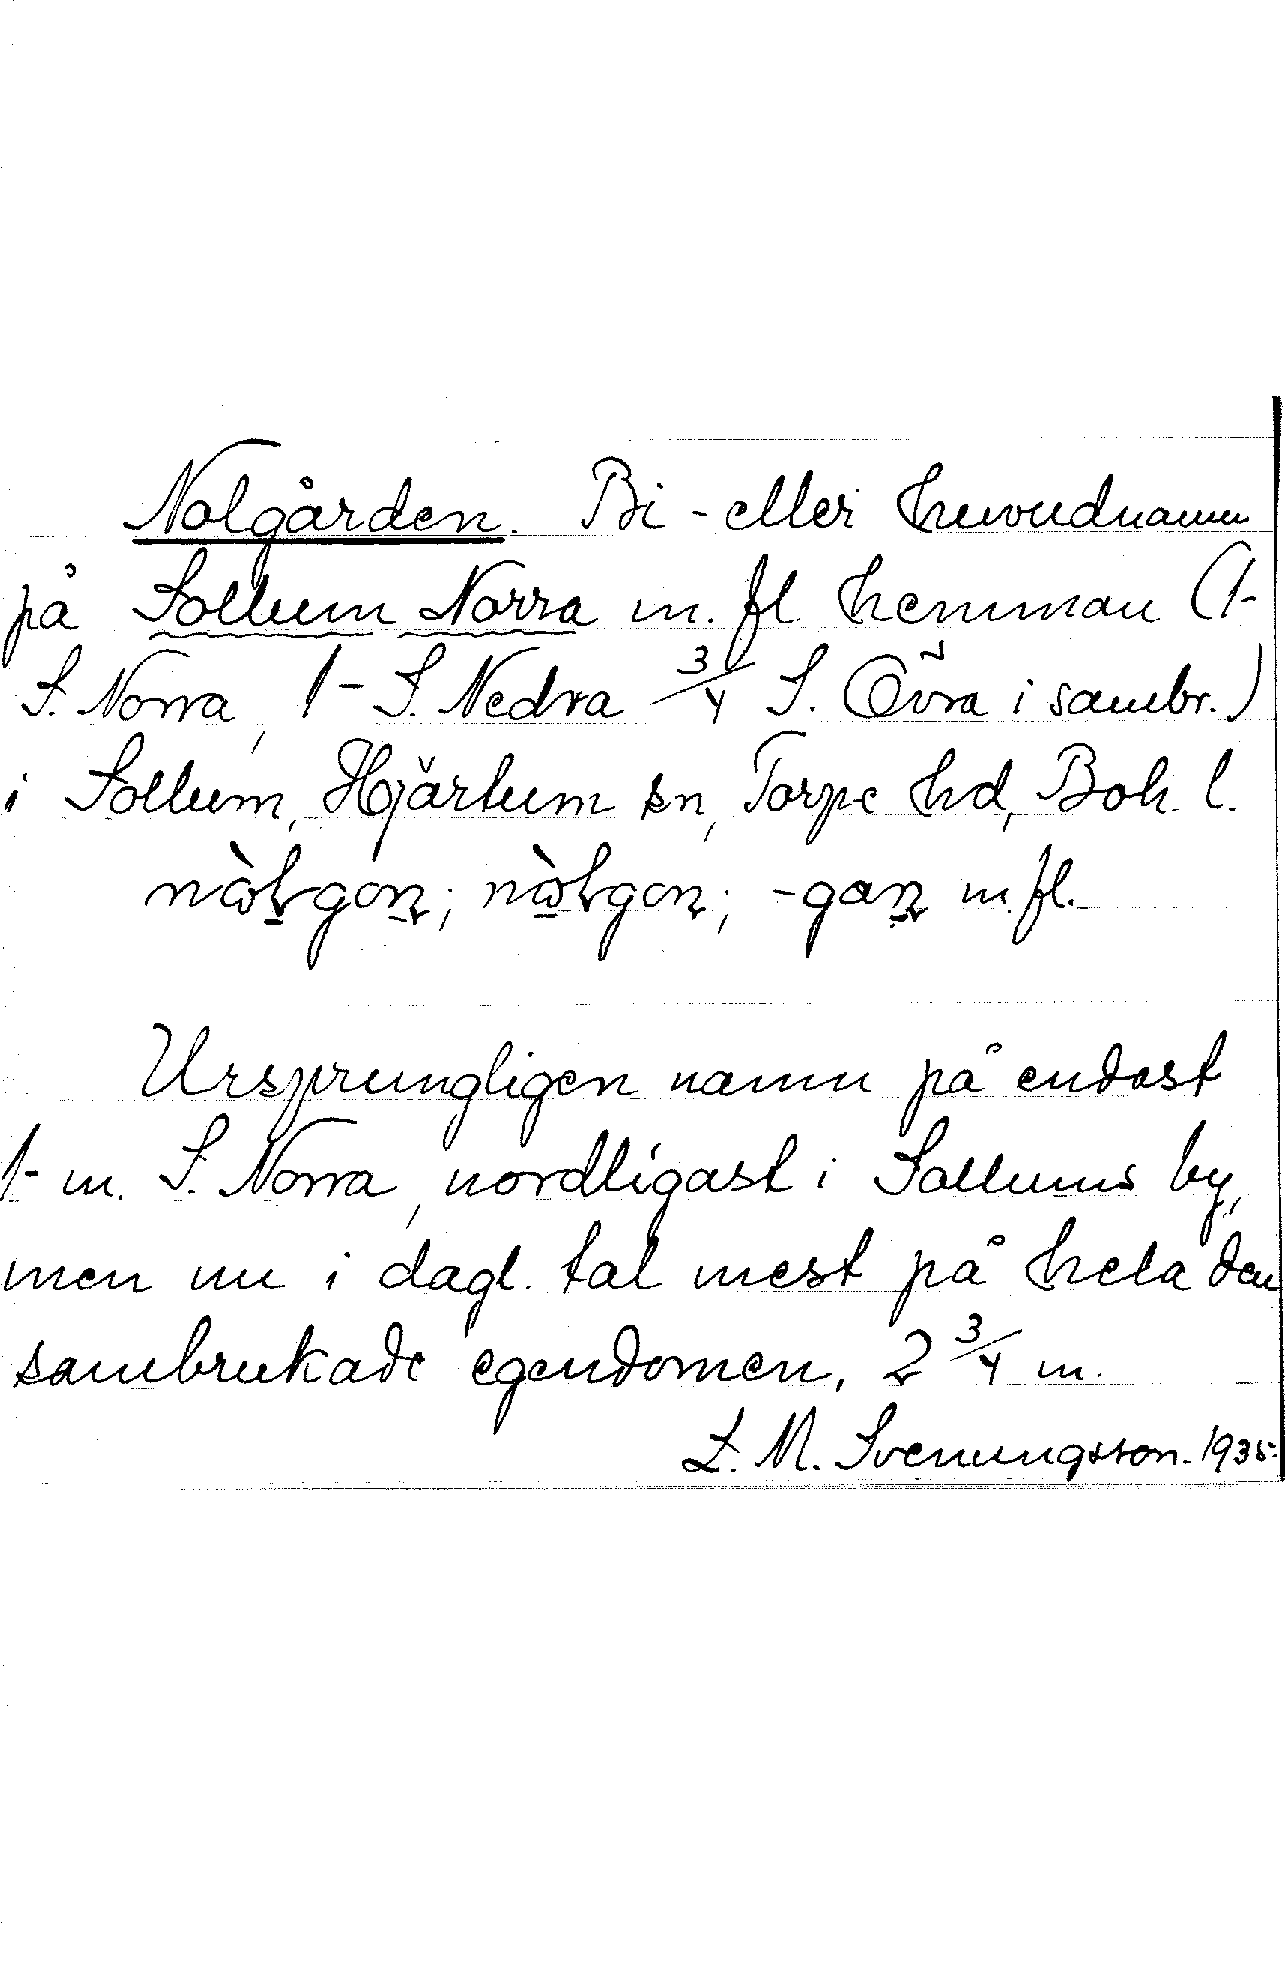 Nolgården. Bi- eller huvudnamn
på Sollum Norra m. fl hemman (1-
S. Norra, 1- S. Nedra 3/4 S. Övra i sambr.)
i Sollum, Hjärtum sn, Torpe hd, Boh. l.
m. fl.
Ursprungligen namn på endast
1- m. S. Norra, nordligast i Sollums by,
men nu i dagl. tal mest på hela den
sambrukade egendomen, 2 3/4 m.
L. M. Svenungsson. 1935.